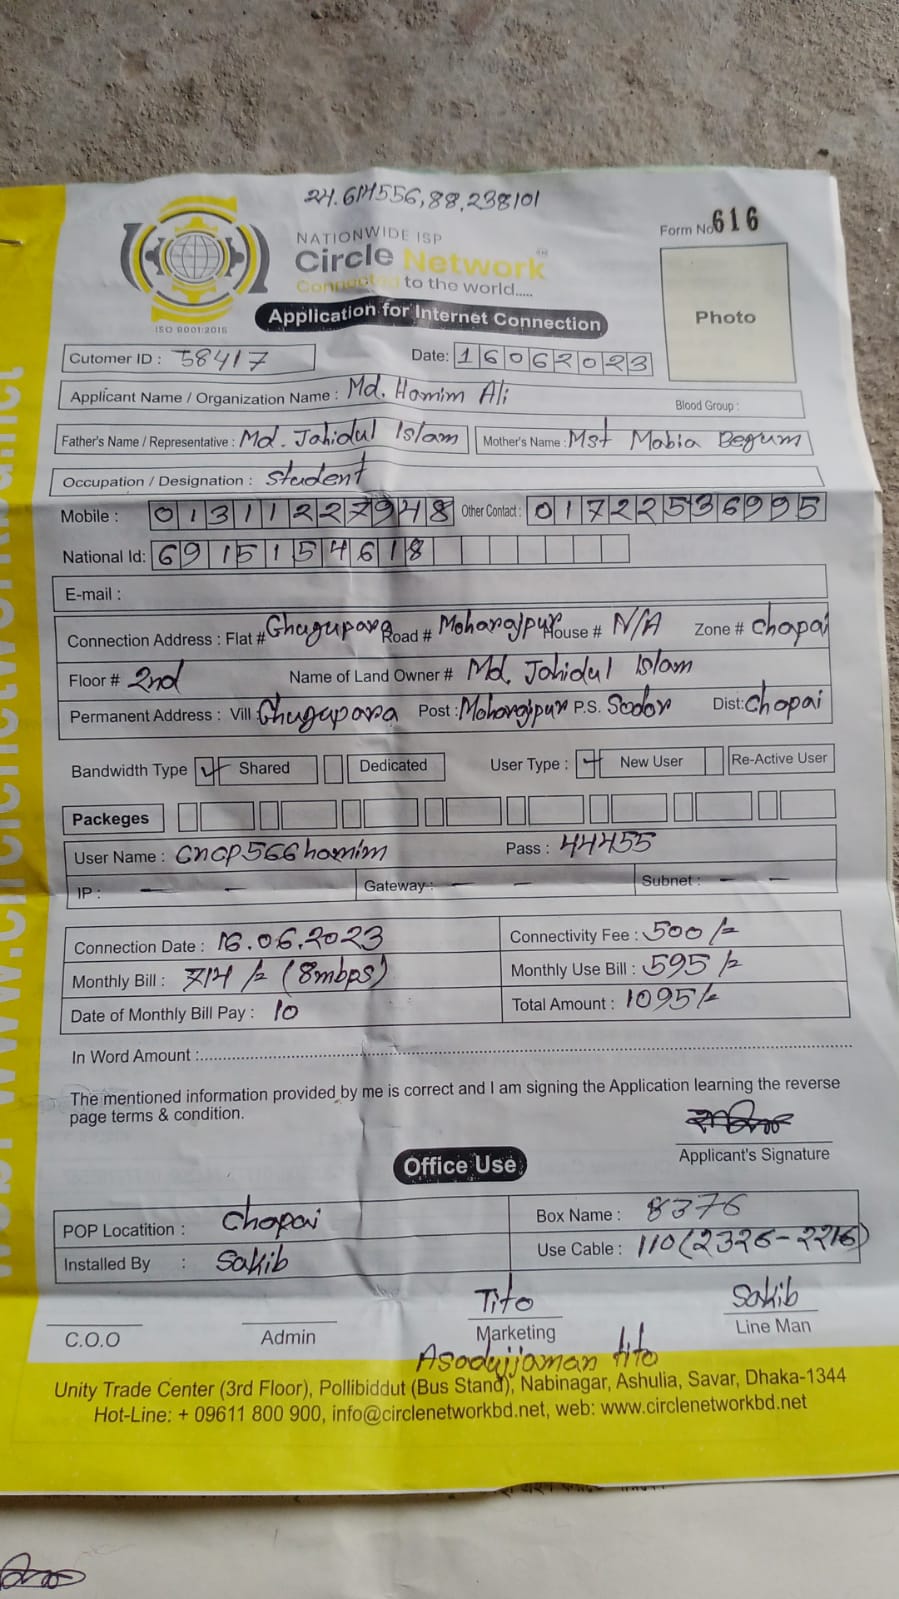 24.614556,88.238101
NATIONWIDE ISP
Circle Network
Connected to the world.....
ISO 9001:2015
Form No 616
Photo
Application for Internet Connection
Cutomer ID : 58417 Date: 16062023
Applicant Name / Organization Name : Md. Hamim Ali Blood Group :
Father's Name / Representative : Md. Jahidul Islam Mother's Name : Mst Mabia Begum
Occupation / Designation : Student
Mobile : 01311227948 Other Contact : 01722536995
National Id: 6915154618
E-mail :
Connection Address : Flat # Ghugupara Road # Moharajpur House # N/A Zone # Chapai
Floor # 2nd Name of Land Owner # Md. Jahidul Islam
Permanent Address : Vill Ghugupara Post : Moharajpur P.S. Sador Dist: Chapai
Bandwidth Type ✓ Shared Dedicated User Type : ✓ New User Re-Active User
Packeges
User Name : cncp566hamim Pass : 44455
IP : - - Gateway : - - Subnet : - -
Connection Date : 16.06.2023 Connectivity Fee : 500/=
Monthly Bill : 714/= (8mbps) Monthly Use Bill : 595/=
Date of Monthly Bill Pay : 10 Total Amount : 1095/=
In Word Amount :
The mentioned information provided by me is correct and I am signing the Application learning the reverse
page terms & condition.
Applicant's Signature
Office Use
POP Locatition : Chapai Box Name : 8376
Installed By : Sakib Use Cable : 110(2326-2216)
Tito Sakib
C.O.O Admin Marketing Line Man
Asadujjaman tito
Unity Trade Center (3rd Floor), Pollibiddut (Bus Stand), Nabinagar, Ashulia, Savar, Dhaka-1344
Hot-Line: + 09611 800 900, info@circlenetworkbd.net, web: www.circlenetworkbd.net